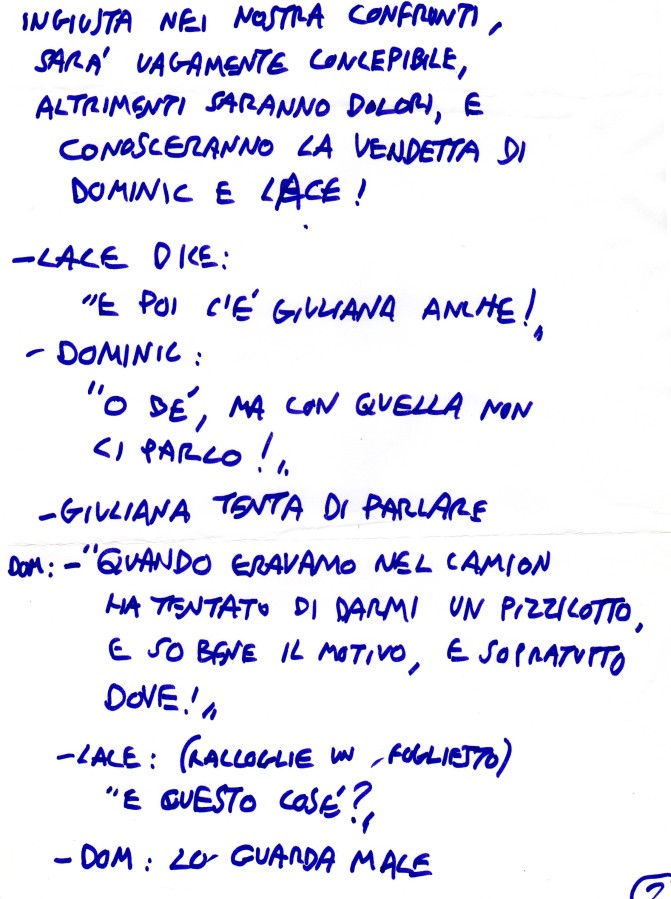 INGIUSTA NEI NOSTRA CONFRONTI,
SARA' VAGAMENTE CONCEPIBILE,
ALTRIMENTI SARANNO DOLORI, E
CONOSCERANNO LA VENDETTA DI
DOMINIC E LACE!
-LACE DICE:
"E POI C'E' GIULIANA ANCHE!"
- DOMINIC:
"O DE', MA CON QUELLA NON
CI PARLO!"
-GIULIANA TENTA DI PARLARE
DOM: -"QUANDO ERAVAMO NEL CAMION
HA TENTATO DI DARMI UN PIZZICOTTO,
E SO BENE IL MOTIVO, E SOPRATUTTO
DOVE!"
-LACE: (RACCOGLIE UN FOGLIETTO)
"E QUESTO COSE'?"
-DOM: LO GUARDA MALE
2